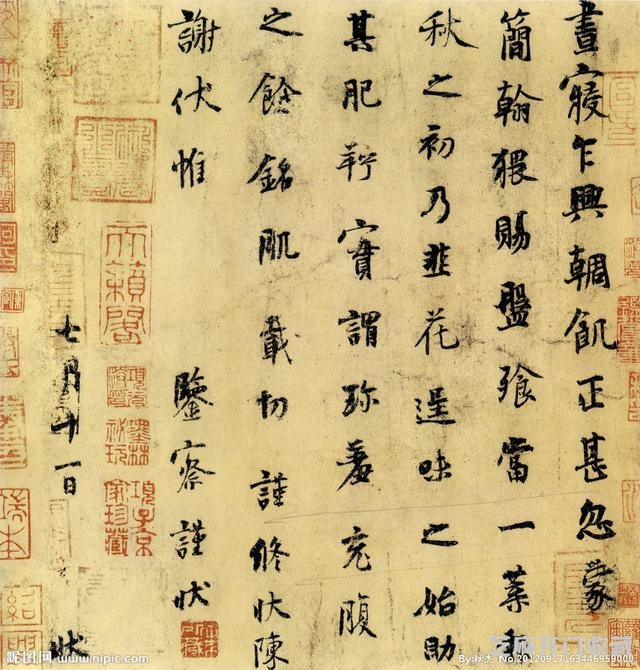 晝寢乍興朝飢正甚忽蒙
簡翰猥賜盤飧當一葉報
秋之初乃韭花逞味之始助
其肥羜實謂珍羞充腹
之餘銘肌載切謹修狀陳
謝伏惟
鑒察謹狀
七月十一日
狀
天籟閣
項子京家珍藏
墨林秘玩
昵图网 www.nipic.com
By:秋杰 No.20120917163446959000